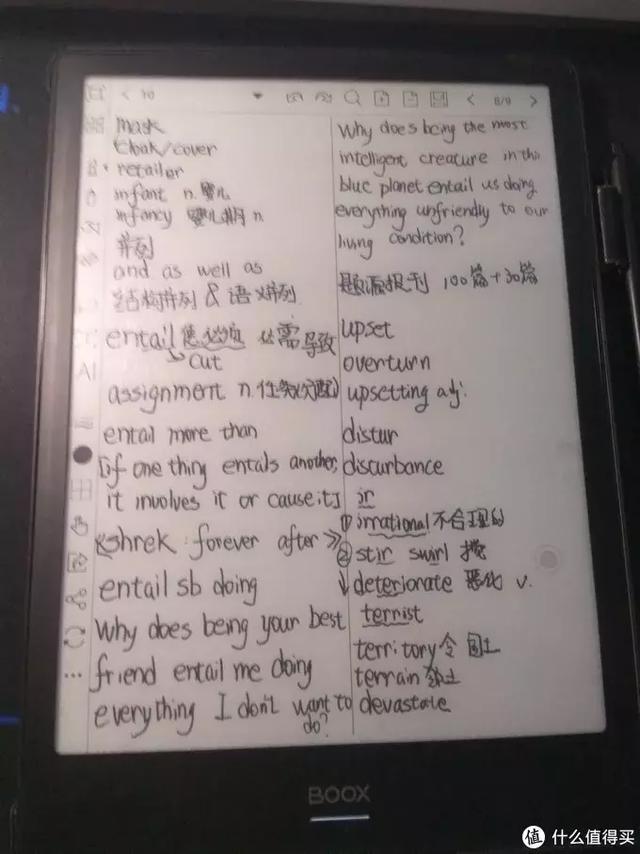 < 10
8/9
mask
cloak/cover
retailer
infant n. 婴儿
infancy 婴儿期 n.
并列
and as well as
结构并列 & 语义并列
entail 使必须 必需 导致
cut
assignment n. 任务(分配)
entail more than
[if one thing entails another,
it involves it or cause it]
《shrek: forever after》
entail sb doing
Why does being your best
friend entail me doing
everything I don't want to
do?
Why does being the most
intelligent creature in this
blue planet entail us doing
everything unfriendly to our
living condition?
题源报刊 100篇+30篇
upset
overturn
upsetting adj.
distur
disturbance
ir
① irrational 不合理的
② stir swirl 搅
deteriorate 恶化 v.
terrist
territory 领土
terrain
devastate
AI
BOOX
值 什么值得买